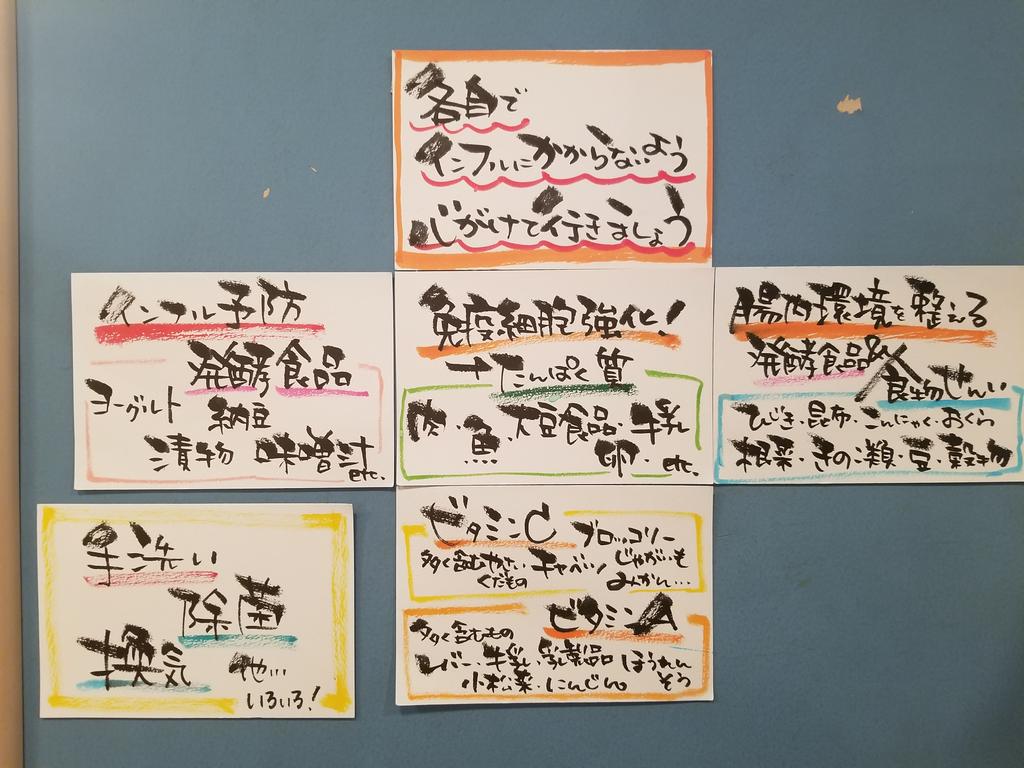 各自で
インフルにかからないよう
心がけて行きましょう
インフル予防
発酵食品
ヨーグルト
納豆
漬物 味噌汁
etc.
免疫細胞強化!
→たんぱく質
肉・魚・大豆食品・牛乳
卵・etc.
腸内環境を整える
発酵食品&
食物せんい
ひじき・昆布・こんにゃく・おくら
根菜・きのこ類・豆・穀物
手洗い
除菌
換気 他…
いろいろ!
ビタミンC
多く含むやさい
くだもの
ブロッコリー
キャベツ じゃがいも
みかん…
ビタミンA
多く含むもの
レバー・牛乳・乳製品 ほうれん
そう
小松菜・にんじん